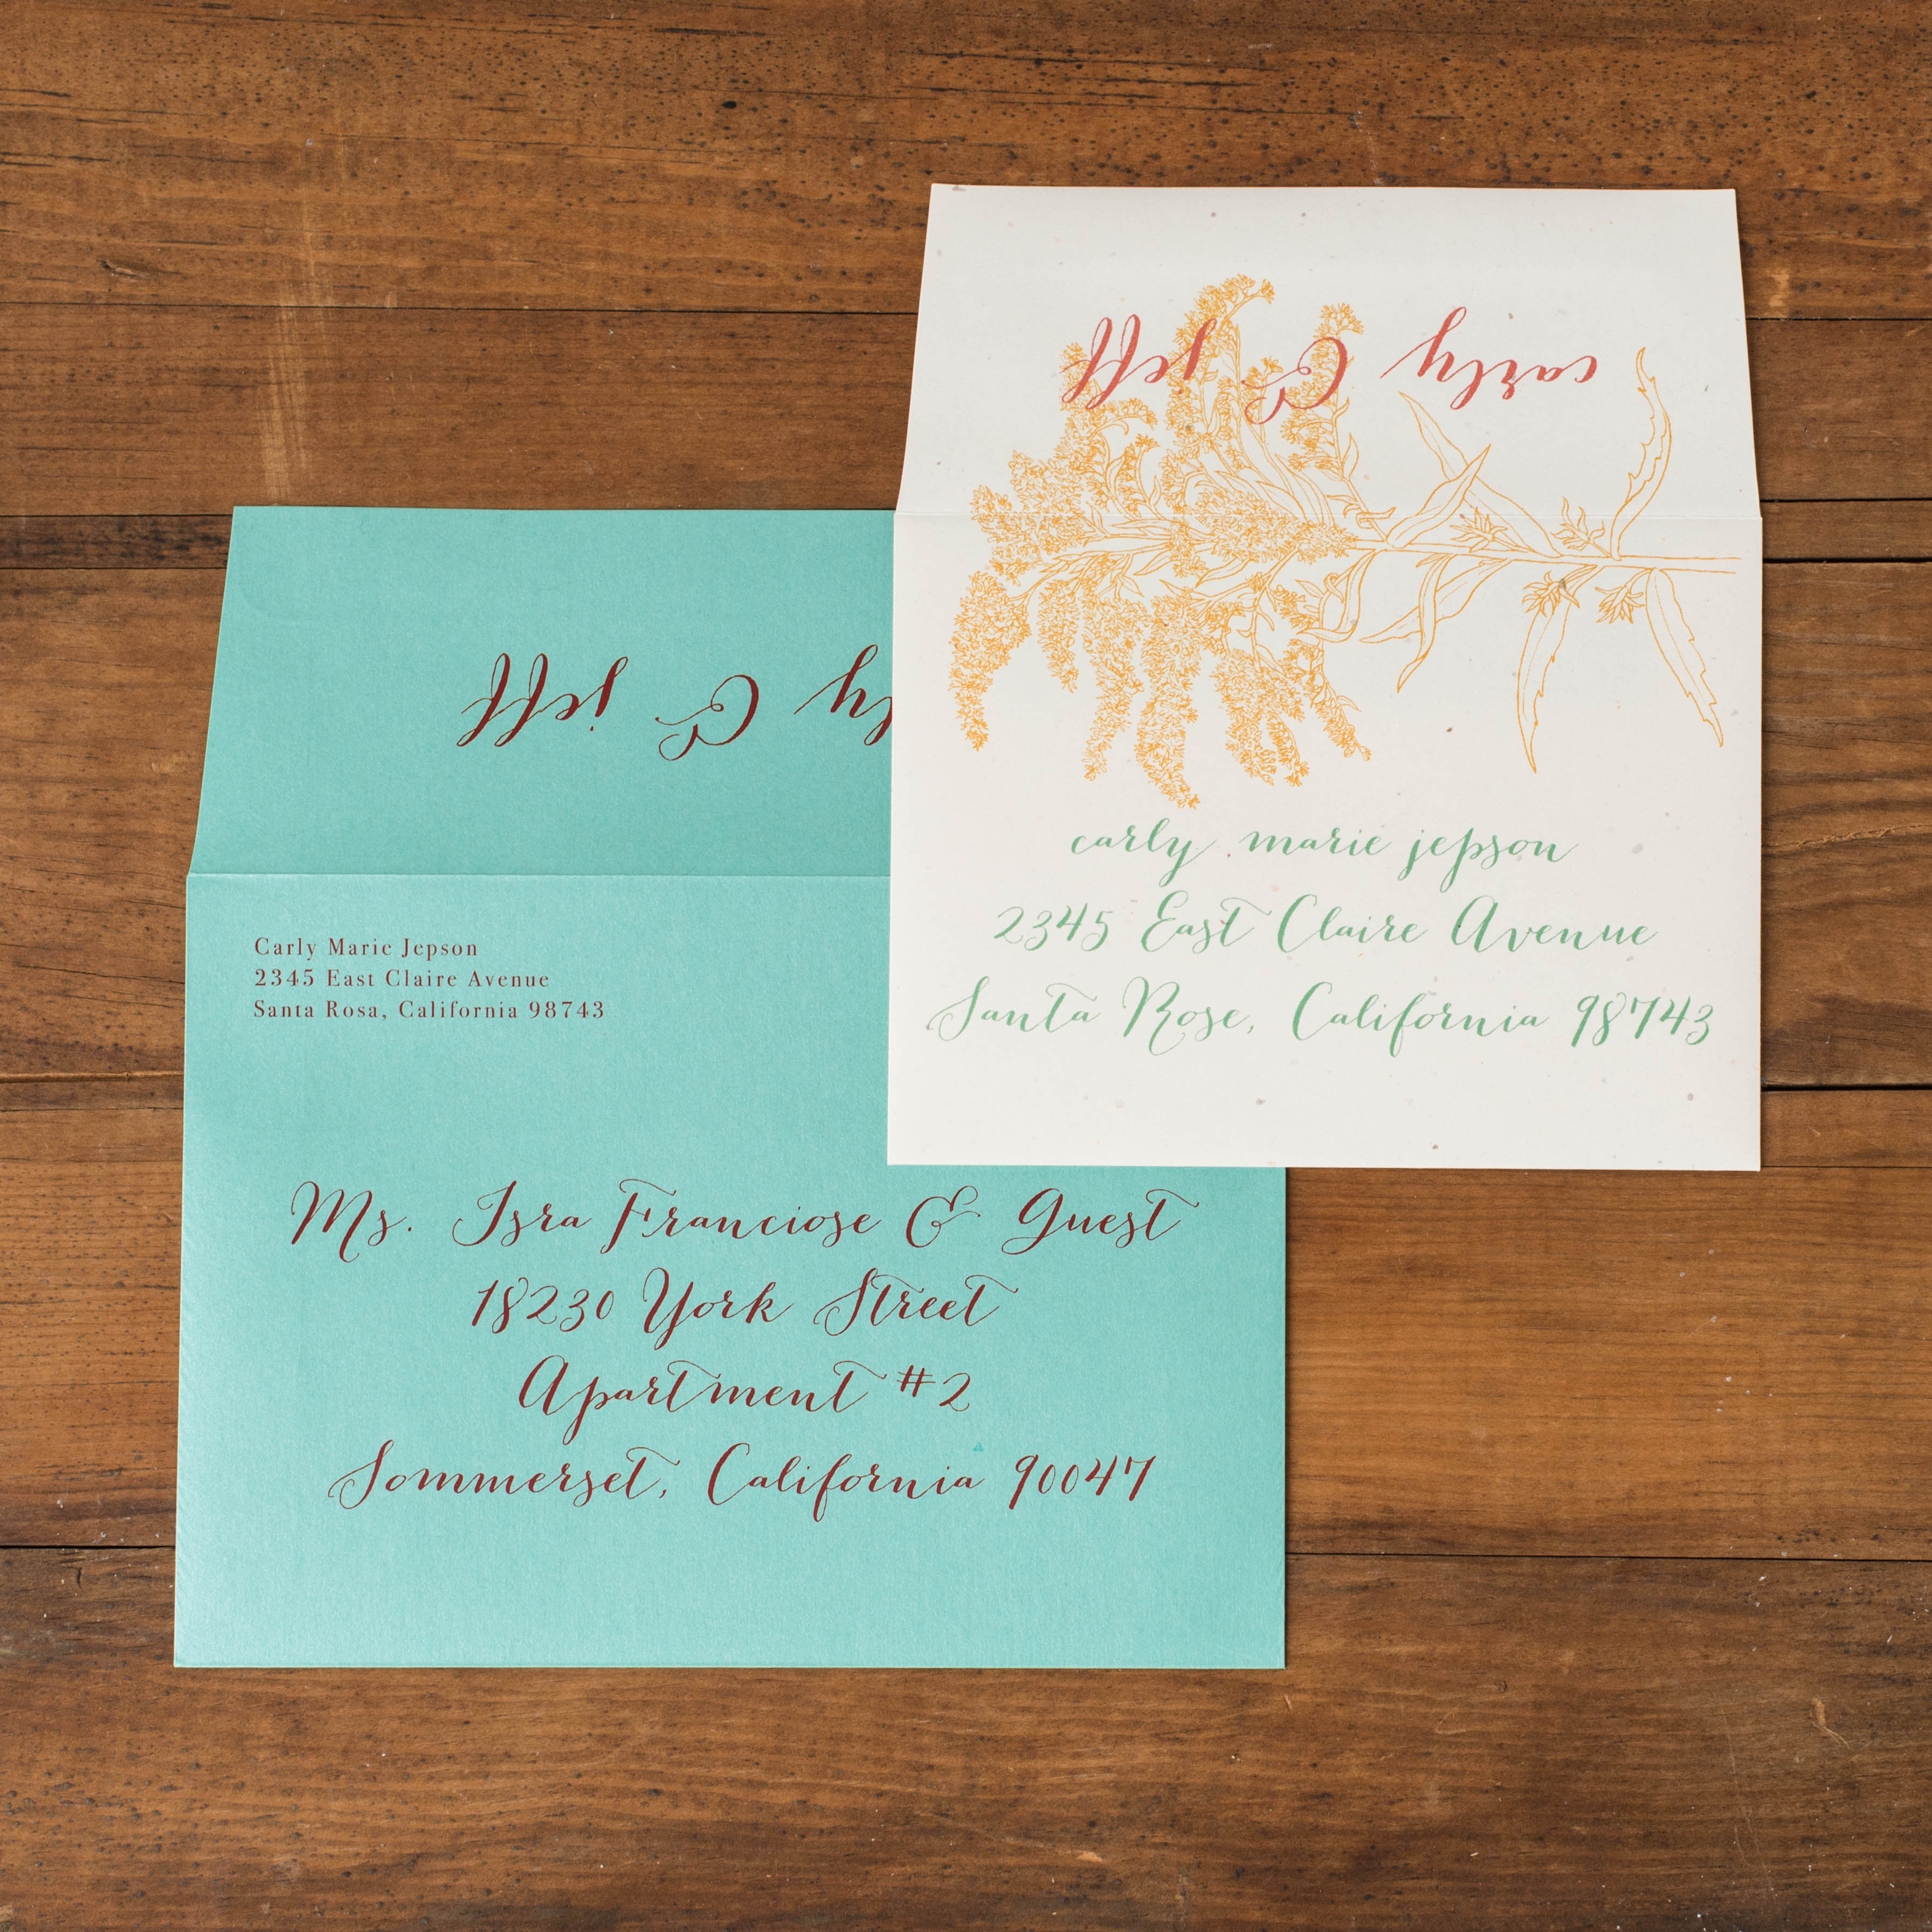 carly & jeff
carly marie jepson
2345 East Claire Avenue
Santa Rose, California 98743
& jeff
Carly Marie Jepson
2345 East Claire Avenue
Santa Rosa, California 98743
Ms. Isra Franciose & Guest
18230 York Street
Apartment #2
Sommerset, California 90047